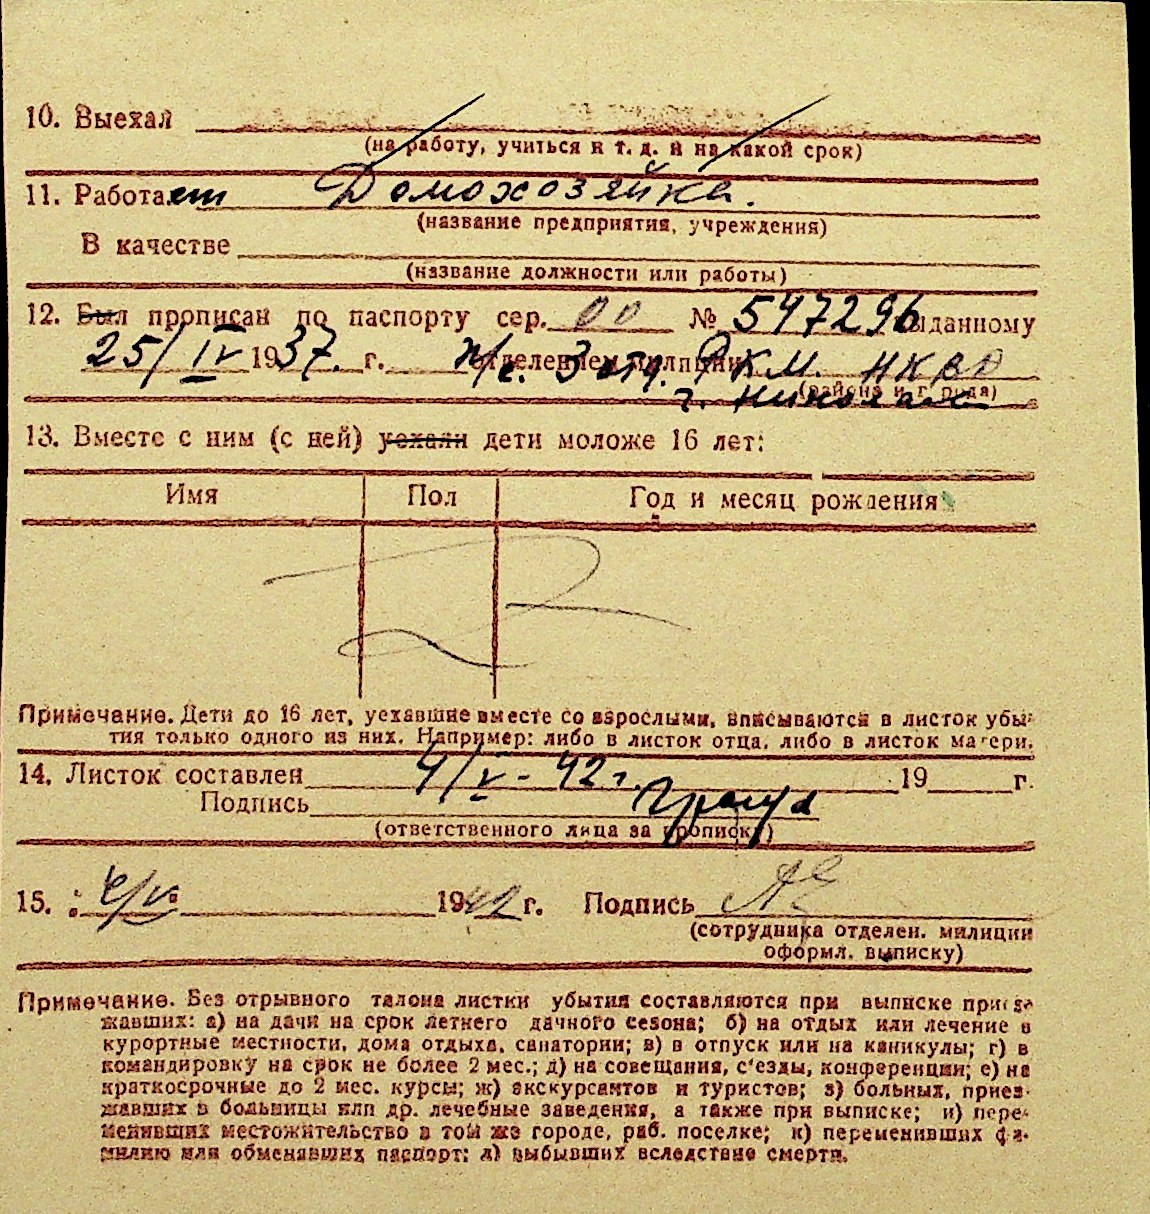 10. Выехал
(на работу, учиться и т. д. и на какой срок)
11. Работает Домохозяйка.
(название предприятия, учреждения)
В качестве
(название должности или работы)
12. Был прописан по паспорту сер. 00 № 547296 выданному
25/IV 1937. г. н/с. 3 отд. отделением милиции РКМ. НКВД
(района и города)
г.
13. Вместе с ним (с ней) уехали дети моложе 16 лет:
Имя Пол Год и месяц рождения
Примечание. Дети до 16 лет, уехавшие вместе со взрослыми, вписываются в листок убы-
тия только одного из них. Например: либо в листок отца, либо в листок матери.
14. Листок составлен 4/V - 42 г. 19 г.
Подпись
(ответственного лица за прописку)
15. 1942 г. Подпись
(сотрудника отделен. милиции
оформл. выписку)
Примечание. Без отрывного талона листки убытия составляются при выписке приез-
жавших: а) на дачи на срок летнего дачного сезона; б) на отдых или лечение в
курортные местности, дома отдыха, санатории; в) в отпуск или на каникулы; г) в
командировку на срок не более 2 мес.; д) на совещания, с'езды, конференции; е) на
краткосрочные до 2 мес. курсы; ж) экскурсантов и туристов; з) больных, приез-
жавших в больницы или др. лечебные заведения, а также при выписке; и) пере-
менивших местожительство в той же городе, раб. поселке; к) переменивших фа-
милию или обменявших паспорт; л) выбывших вследствие смерти.